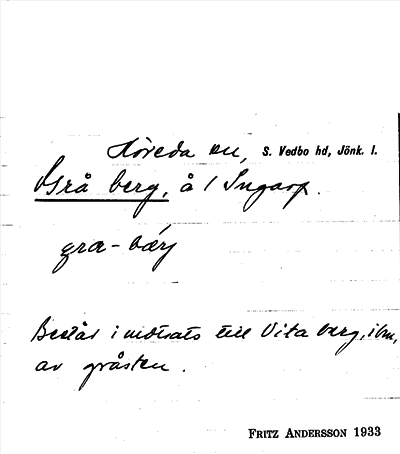 Höreda sn, S. Vedbo hd, Jönk. l.
Grå berg, å / Ingarp.
gra - bærj
Består i motsats till Vita berg, ibm,
av gråsten.
FRITZ ANDERSSON 1933